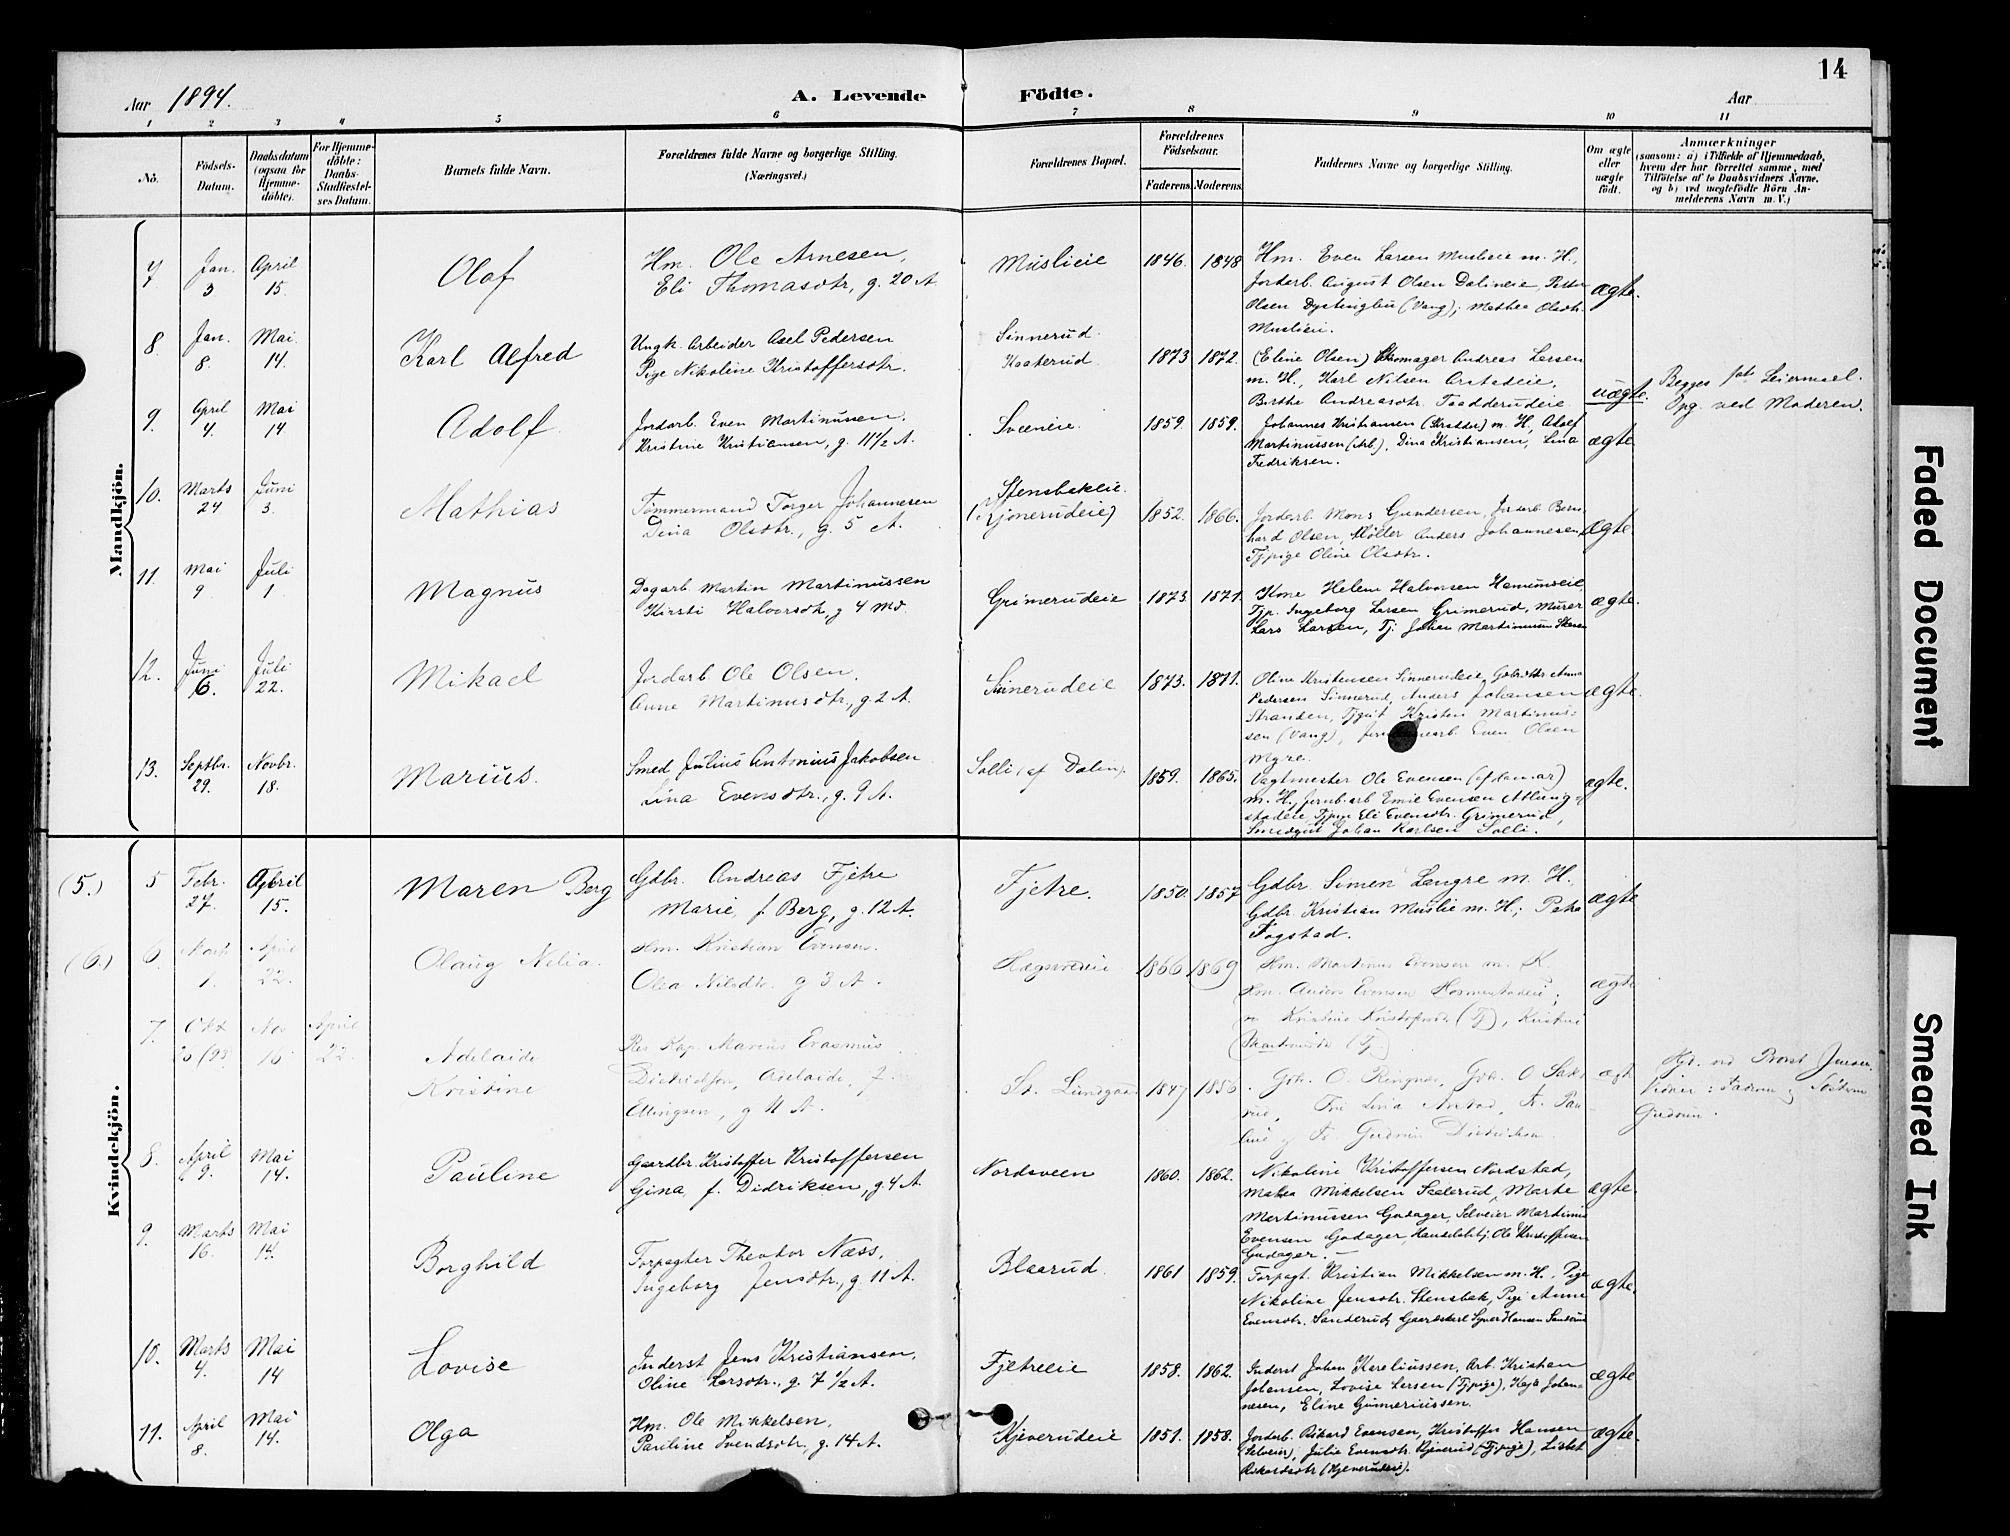 14
Aar 1894.
A. Levende Födte.
Aar
1 2 3 4 5 6 7 8 9 10 11
No.
Födsels-Datum.
Daabsdatum (ogsaa for Hjemme-döbte).
For Hjemme-döbte: Daabs-Stadfæstel-ses Datum.
Barnets fulde Navn.
Forældrenes fulde Navne og borgerlige Stilling.
(Næringsvei.)
Forældrenes Bopæl.
Forældrenes Födselsaar.
Faderens. Moderens.
Faddernes Navne og borgerlige Stilling.
Om ægte eller uægte födt.
Anmærkninger
(saasom: a) i Tilfælde af Hjemmedaab, hvem der har forrettet samme, med Tilföielse af to Daabsvidners Navne, og b) ved uægtefödte Börn Anmelderens Navn m. V.)
Mandkjön.
7 Jan. 3 April 15. Olaf
Hm. Ole Arnesen,
Eli Thomasdtr, g. 20 A.
Muslieie 1846. 1848
Hm. Even Larsen Muslieie m. H.,
Jordarb. August Olsen Dalineie, Petter
Olsen Dystingbu (Vang); Mathea Olsdtr.
Muslieie.
ægte.
8. Jan. 8. Mai 14. Karl Alfred
Ungk. Arbeider Axel Pedersen
Pige Nikoline Kristoffersdtr.
Sinnerud.
Kaaterud. 1873 1872.
(Eline Olsen) Skomager Andreas Larsen
m. H., Karl Nilsen Arstadeie,
Berthe Andreasdtr. Taadderudeie
uægte.
Begges 1ste Leiermaal.
Opg. ved Moderen.
9. April 4. Mai 14 Adolf
Jordarb. Even Martinusen.
Kristine Kristiansen, g. 11 1/2 A.
Sveeneie. 1859. 1859.
Johannes Kristiansen (Skrædder) m. H., Adolf
Martinussen (Arb.), Dina Kristiansen, Lina
Fredriksen.
ægte
10. Marts 24 Juni 3. Mathias
Tömmermand Torger Johannesen
Dina Olsdtr., g. 5 A.
Stensbækeie.
(Kjonerudeie) 1852. 1866.
Jordarb. Mons Gundersen, Jordarb. Bern-
hard Olsen, Möller Anders Johannesen,
Tjpige Oline Olsdtr.
Ægte.
11. Mai 9 Juli 1 Magnus
Dagarb. Martin Martinussen
Kirsti Halvorsdtr, g 4 Md.
Grimerudeie 1873. 1871.
Kone Helene Halvorsen Hammseie,
Tjp. Ingeborg Larsen Grimerud, Murer
Lars Larsen, Tj. Johan Martinussen
ægte.
12. Juni 6. Juli 22. Mikael
Jordarb Ole Olsen.
Anne Martinusdtr., g. 2 A.
Sinnerudeie 1873. 1871.
Oline Kristensen Sinnerudeie, Gbrdtr Anna
Pedersen Sinnerud, Anders Johansen
Stranden, Tjgut Kristen Martinus-
sen (Vang), Even Olsen
Myre.
ægte.
13. Septbr. 29. Novbr. 18. Marius.
Smed Julius Antonius Jakobsen
Lina Evensdtr., g. 9 A.
Solli (af Dalen). 1859. 1865.
Vagtmester Ole Evensen (af Hamar)
m. H., Jernb.arb Emil Evensen Atlung-
stadeie, Tjpige Eli Evensdtr. Grimerud,
Smedgut Johan Karlsen Solli.
ægte.
Kvindekjön.
(5.) 5 Febr. 27. April 15. Maren Berg
Gdbr. Andreas Fjetre
Marie, f. Berg, g. 12 A.
Fjetre. 1850. 1857
Gdbr. Simen Længre m. H.,
Gdbr. Kristian Muslie m. H.; Petra
Fogstad.
ægte
(6.) 6. Marts 1. April 22. Olaug Nelia.
Hm. Kristian Evensen.
Olea Nilsdtr. g 3 A.
1866 1869
Hm. Martinus Evensen m. K.
Hm. Anders Evensen
Kristine Kristofersdtr (Tj), Kristine
(Tj.)
ægte
7. Okt 25 (93 Nov 16 April 22. Adelaide
Kristine
Res. Kap. Marius Erasmus
Didrichson, Adelaide, f.
Ellingsen, g 11 A.
St. Lundgaard 1847 1856
Gbr. O. Ringnæs, Gbr. O Saks-
rud, Frk Lina Arstad, Fr. Pau-
line og Fr. Gudrun Didrichson.
ægte
Hjd. ved Provst Jensen.
Vidner: Faderen og Söstren
Gudrun.
8. April 9. Mai 14. Pauline
Gaardbr. Kristoffer Kristoffersen
Gina, f. Didriksen, g. 4 A.
Nordsveen 1860. 1862.
Nikoline Kristoffersen Nordstad,
Mathea Mikkelsen Saelerud, Marte
Martinussen Godager, Selveier Martinus
Evensen Godager, Handelsbtj. Ole Kristoffersen
Godager. —
ægte.
9. Marts 16. Mai 14. Borghild
Forpagter Theodor Næss,
Ingeborg Jensdtr., g. 11 A.
Blaarud. 1861 1859.
Forpagt. Kristian Mikkelsen m. H., Pige
Nikoline Jensdtr. Stensbæk, Pige Anne
Evensdtr. Sanderud, Gaardskarl Syver Hansen Sanderud
ægte.
10. Marts 4. Mai 14 Lovise
Inderst Jens Kristiansen,
Oline Larsdtr., g. 7 1/2 A.
Fjetreeie 1858. 1862.
Inderst Johan Kareliussen, Arb. Kristian
Johansen, Lovise Larsen (Tjpige), Kaja Johan-
nesen, Eline Gunneriussen.
ægte
11. April 8. Mai 14. Olga
Hm. Ole Mikkelsen,
Pauline Svendsdtr., g. 14 A.
Kjeverudeie 1851. 1858.
Jordarb. Rikard Evensen, Kristoffer Hansen
(Selveier), Julie Evensdtr. Kjeverud (Tjpige), Lisbet
Rikardsdtr (Kjeverudeie).
ægte.
Faded Document
Smeared Ink